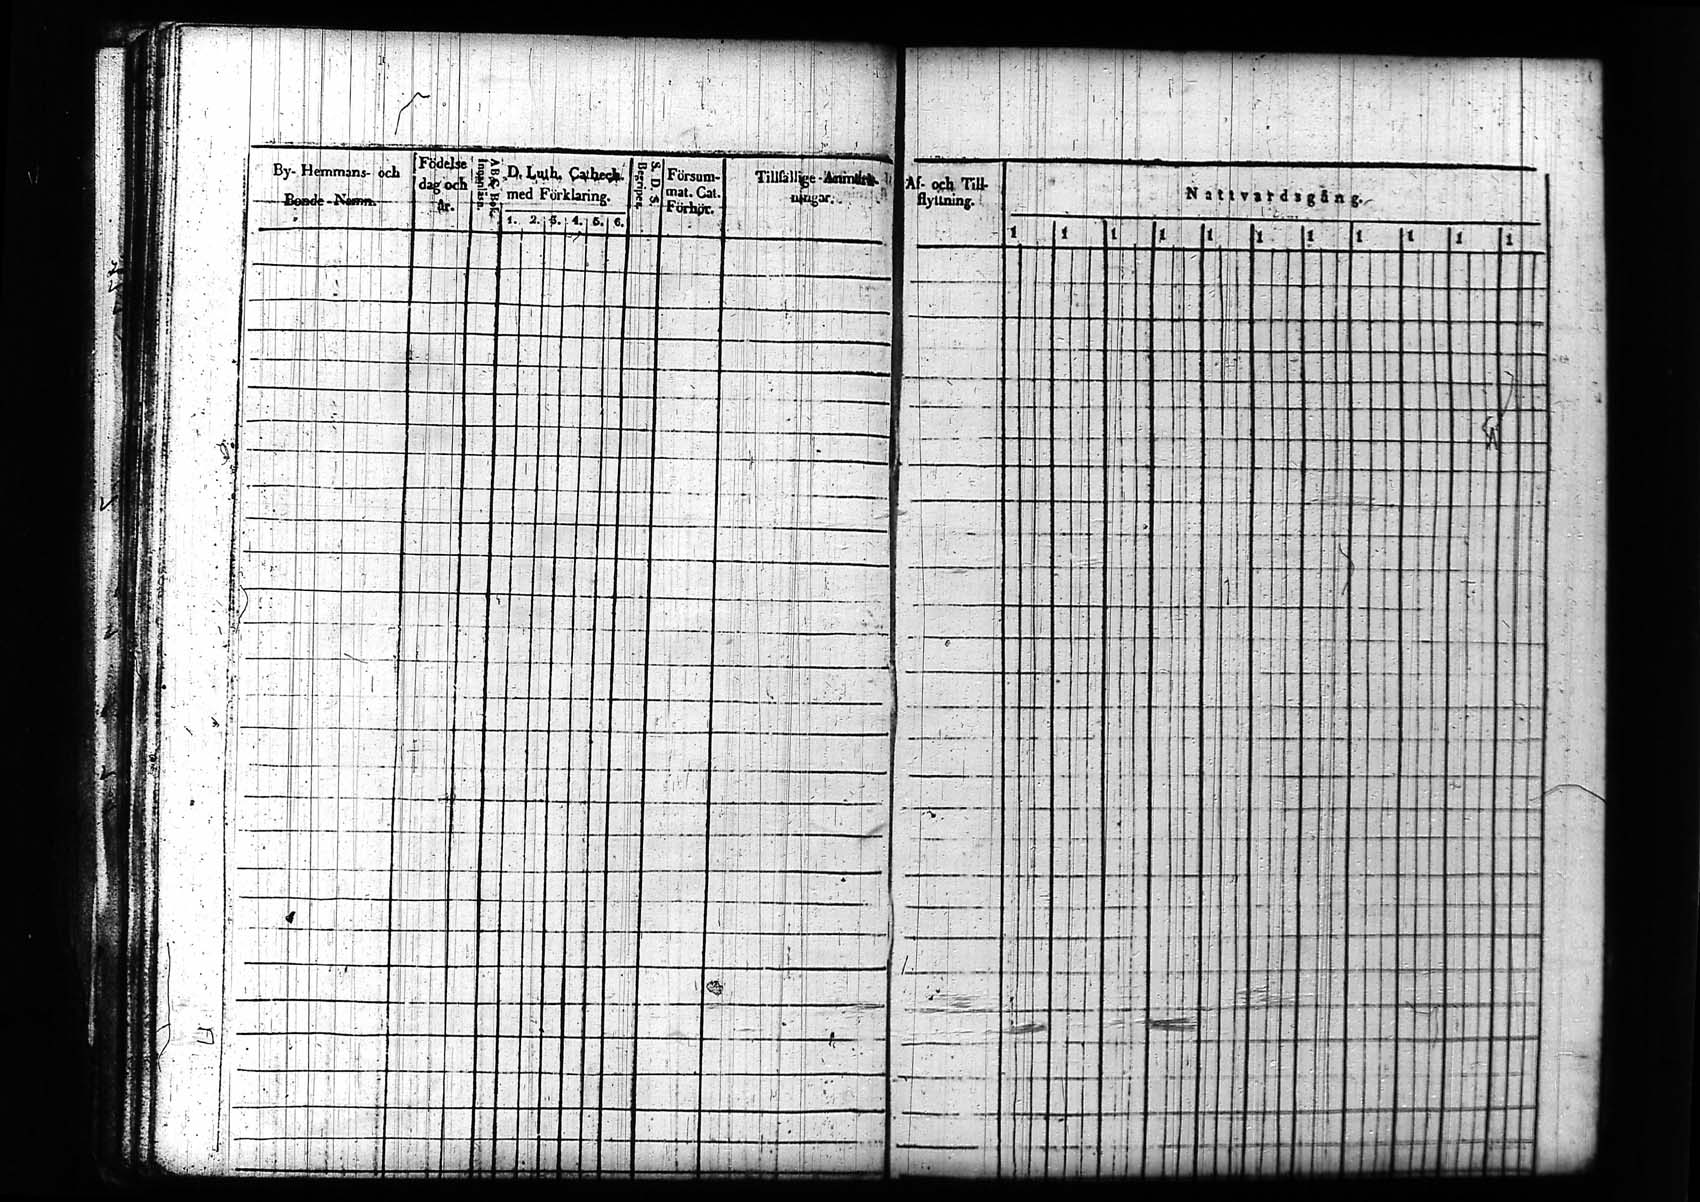 By- Hemmans- och
Bonde-Namn.
Födelse
dag och
år.
A B C Bok.
Innanläsn.
D. Luth. Cathech.
med Förklaring.
1. 2. 3. 4. 5. 6.
S. D. S.
Begriper.
Försum-
mat. Cat.
Förhör.
Tillfällige Anmärk-
ningar.
Af- och Till-
flyttning.
Nattvardsgång.
1 1 1 1 1 1 1 1 1 1 1